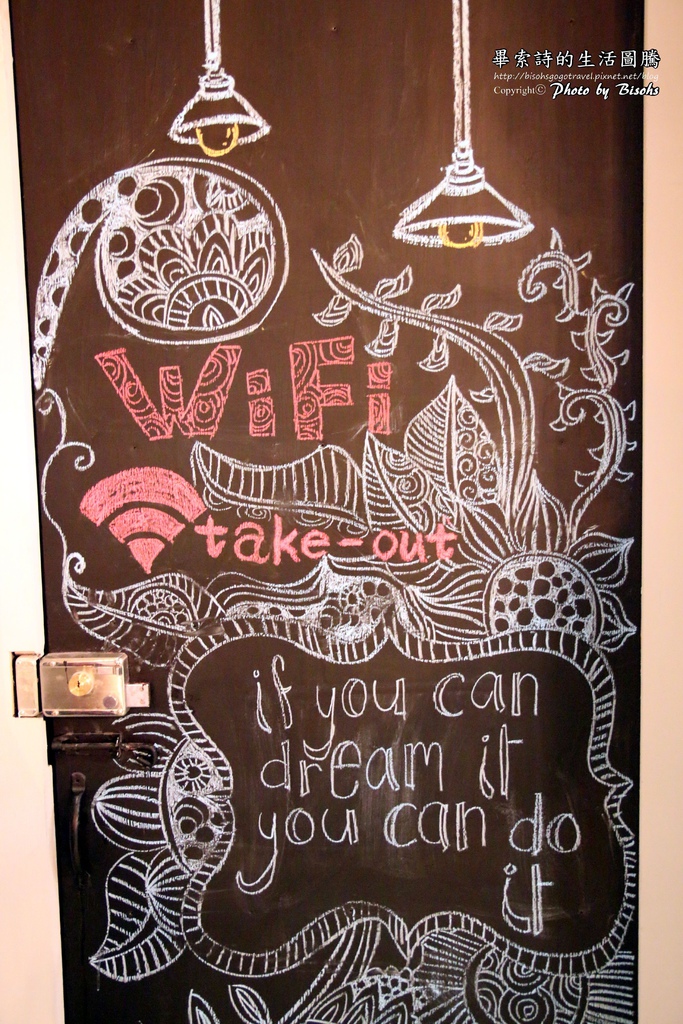 畢索詩的生活圖騰
http://bisohsgogotravel.pixnet.net/blog
Copyright© Photo by Bisohs
WiFi
take-out
if you can
dream it
you can do
it